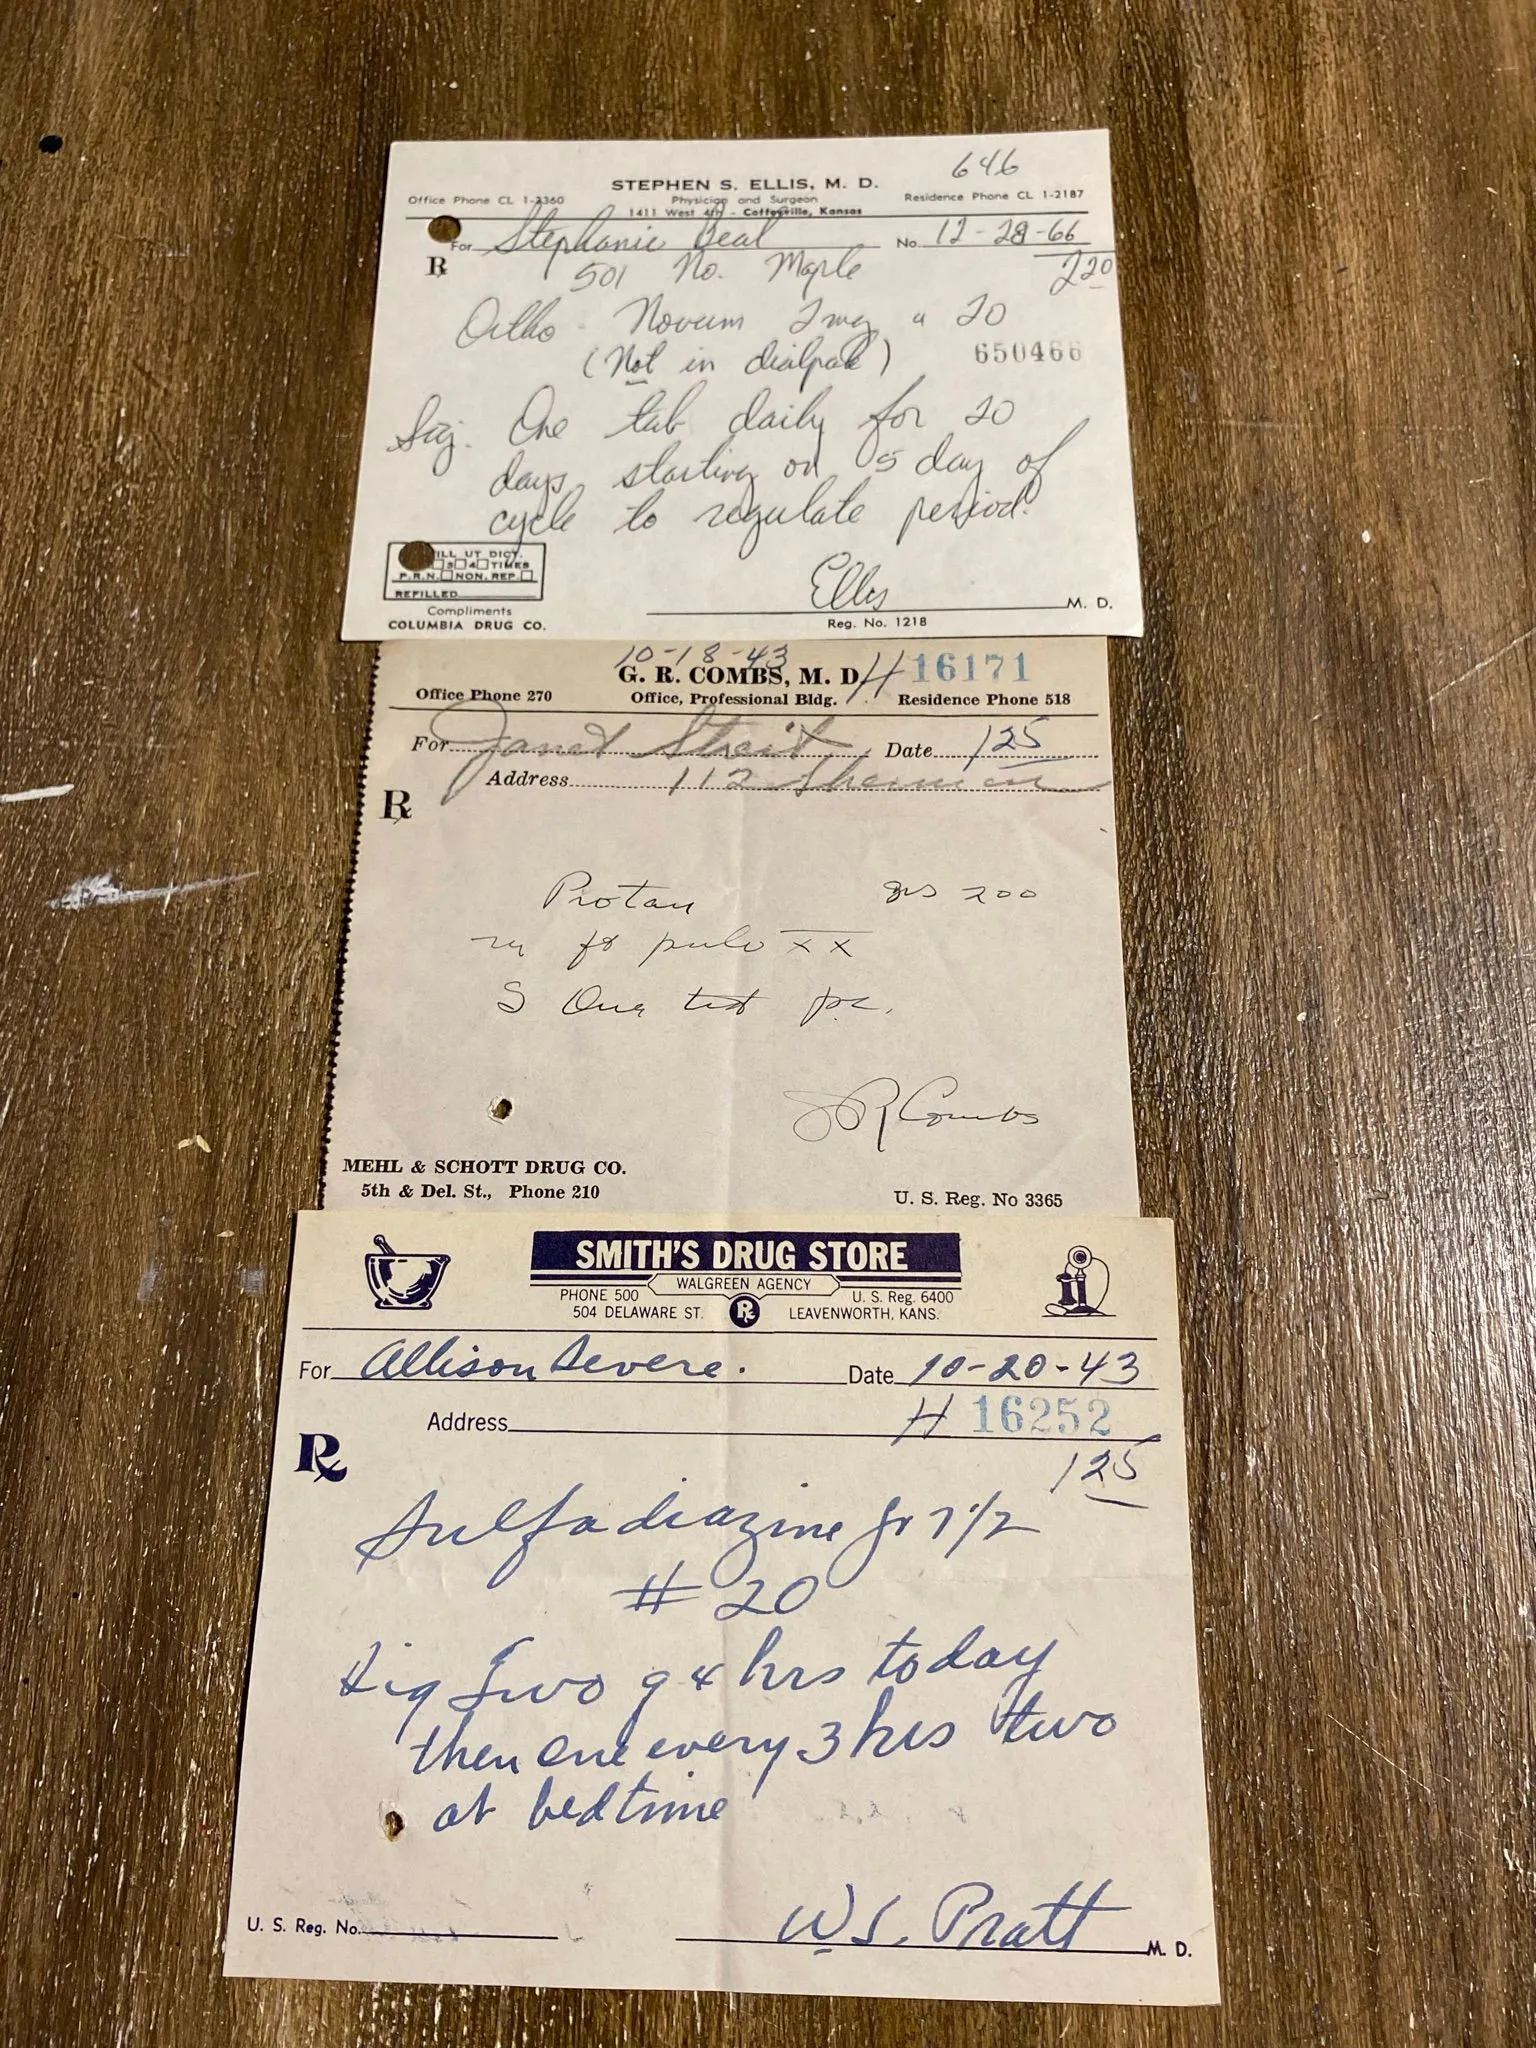 646
STEPHEN S. ELLIS, M. D.
Office Phone CL 1-2360 Physician and Surgeon Residence Phone CL 1-2187
1411 West 4th - Coffeyville, Kansas
For Stephanie Beal No. 12-28-66
℞ 501 No. Maple 2 20
Ortho - Novum 2 mg 20
(Not in dialpak) 650466
Sig. One tab daily for 20
days starting on 5 day of
cycle to regulate period.
ILL UT DICT.
3 4 TIMES
P.R.N. NON. REP.
REFILLED
Ellis M. D.
Compliments
COLUMBIA DRUG CO. Reg. No. 1218
10-18-43
G. R. COMBS, M. D. H 16171
Office Phone 270 Office, Professional Bldg. Residence Phone 518
For Janet Streit Date 125
Address 112 Sherman
℞
Protan grs 200
pulv XX
S One p.c.
G R Combs
MEHL & SCHOTT DRUG CO.
5th & Del. St., Phone 210 U. S. Reg. No 3365
SMITH'S DRUG STORE
WALGREEN AGENCY
PHONE 500 U. S. Reg. 6400
504 DELAWARE ST. ℞ LEAVENWORTH, KANS.
For Allison Severe. Date 10-20-43
Address H 16252
℞ 125
Sulfadiazine gr 7 1/2
# 20
Sig Two q 4 hrs today
then one every 3 hrs two
at bedtime
W S. Pratt
U. S. Reg. No. M. D.